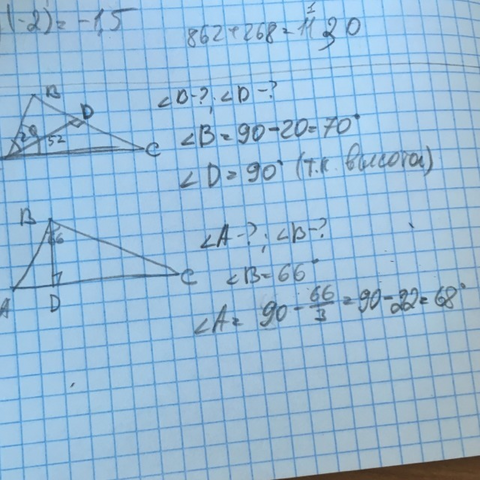 (-2) = -1,5
862+268=1130
B
D
20
52
C
∠B-?; ∠D-?
∠B = 90-20=70°
∠D = 90° (т.к. высота)
B
66
A
D
C
∠A-?; ∠B-?
∠B=66°
∠A= 90 - 66/3 = 90-22=68°